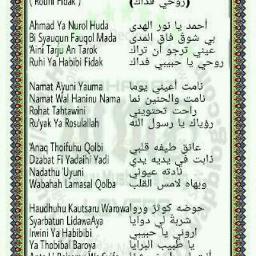 ( Rouhi Fidak ) (روحي فداك)
Ahmad Ya Nurol Huda أحمد يا نور الهدى
Bi Syauqun Fauqol Mada بي شوق فاق المدى
'Aini Tarju An Tarok عيني ترجو أن تراك
Ruhi Ya Habibi Fidak روحي يا حبيبي فداك
Namat Ayuni Yauma نامت أعيني يوما
Namat Wal Haninu Nama نامت والحنين نما
Rohat Tahtawini راحت تحتويني
Ru'yak Ya Rosulallah رؤياك يا رسول الله
'Anaq Thoifuhu Qolbi عانق طيفه قلبي
Dzabat Fi Yadaihi Yadi ذابت في يديه يدي
Nadathu Uyuni نادته عيوني
Wabahah Lamasal Qolba وبهاه لامس القلب
Haudhuhu Kautsaru Warowa حوضه كوثر وروا
Syarbatun LidawaAya شربة لي دوايا
Irwini Ya Habibibi أروني يا حبيبي
Ya Thobibal Baroya يا طبيب البرايا